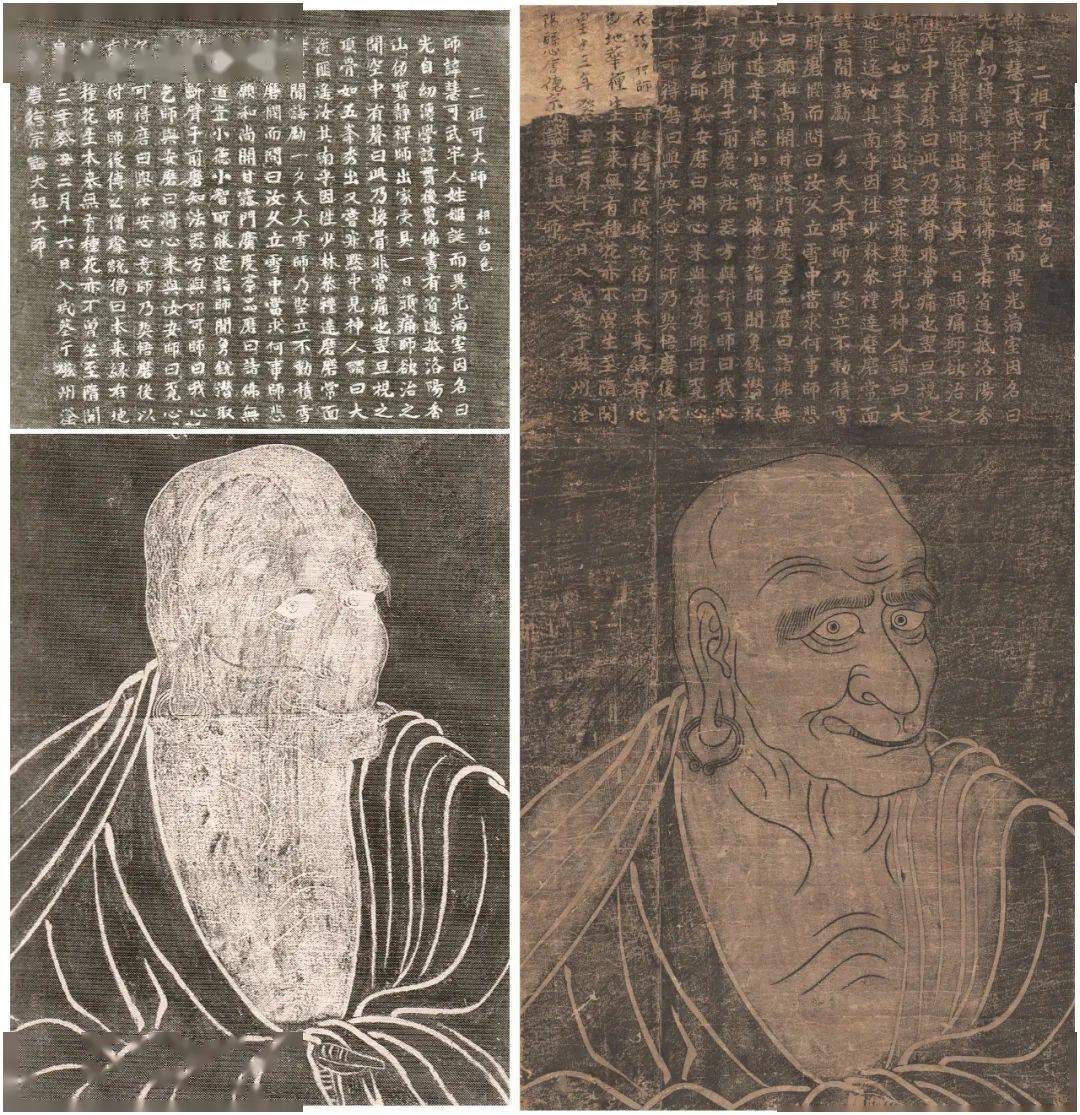 二祖可大師 相紅白色
師諱慧可武牢人姓姬誕而異光滿室因名曰
光自幼博學該貫後覽佛書有省遂抵洛陽香
山依寶靜禪師出家受具一日頭痛師欲治之
聞空中有聲曰此乃換骨非常痛也翌旦視之
頂骨如五峯秀出又嘗於默中見神人謂曰大
道匪遙汝其南乎因往少林參禮達磨磨常面
聞誨勵一夕天大雪師乃堅立不動積雪
磨閔而問曰汝久立雪中當求何事師悲
願和尚開甘露門廣度羣品磨曰諸佛無
道豈小德小智所能造詣師聞易銳潛取
斷臂于前磨知法器方與印可師曰我心
乞師與安磨曰將心來與汝安師曰覓心
可得磨曰與汝安心竟師乃契悟磨後以
付師師後傳之僧璨說偈曰本来緣有地
種花生本来無有種花亦不曾生至隋開
三年癸丑三月十六日入戒葬于磁州滏
唐德宗諡大祖大師
二祖可大師 相紅白色
師諱慧可武牢人姓姬誕而異光滿室因名曰
光自幼博學該貫後覽佛書有省遂抵洛陽香
依寶靜禪師出家受具一日頭痛師欲治之
聞空中有聲曰此乃換骨非常痛也翌旦視之
頂骨如五峯秀出又嘗於默中見神人謂曰大
道匪遙汝其南乎因往少林參禮達磨磨常面
壁莫聞誨勵一夕天大雪師乃堅立不動積雪
過膝磨閔而問曰汝久立雪中當求何事師悲
淚曰願和尚開甘露門廣度羣品磨曰諸佛無
上妙道豈小德小智所能造詣師聞易銳潛取
利刀斷臂于前磨知法器方與印可師曰我心
未寧乞師與安磨曰將心来與汝安師曰覓心
了不可得磨曰與汝安心竟師乃契悟磨後以
衣法付師師後傳之僧璨說偈曰本来緣有地
因地華種生本来無有種花亦不曾生至隋開
皇十三年癸丑三月十六日入戒葬于磁州滏
陽縣唐德宗諡大祖大師